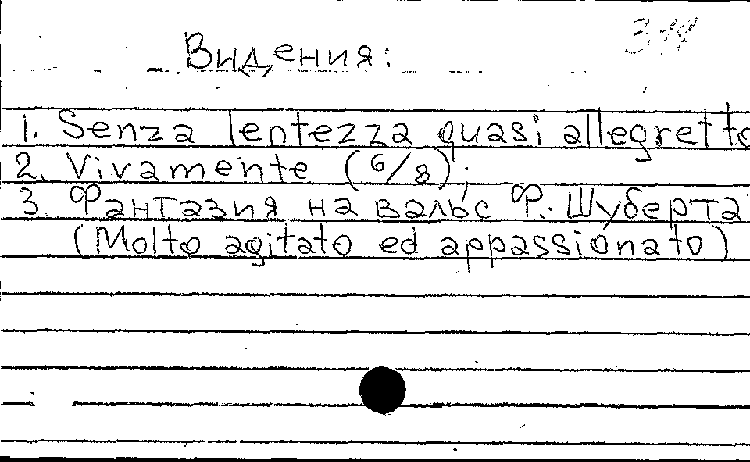 Видения:
1. Senza lentezza quasi allegretto
2. Vivamente (6/8);
3. Фантазия на вальс Ф. Шуберта
(Molto agitato ed appassionato)